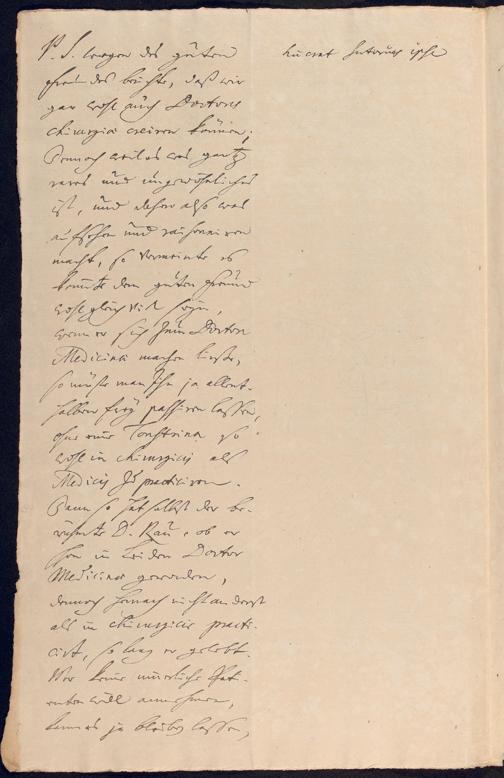 P. S. wegen des guten
freundes brichte, daß wir
gar wohl auch Doctores
Chirurgiæ creiren können;
Dennoch weil es was gantz
rares und ungewöhnliches
ist, und daher also was
aufsehen und raisonniren
macht, so vermeinte es
könnte dem guten freund
wohl gleich viel seyn,
wenn er sich zum Doctor
Medicinæ machen ließe,
so müste man Ihn ja allent-
halben frey passiren lassen,
ohne eine Tonstrina so
wohl in Chirurgicis als
Medicis zu practiciren.
Dann so hat selbst der be-
rühmte D. Rau, ob er
schon in Leiden Doctor
Medicinæ geworden,
dennoch hernach nicht anderst
als in Chirurgicis practi-
cirt, so lang er gelebt.
Wer keine innerliche Pati-
enten will annehmen,
kann es ja bleiben lassen,